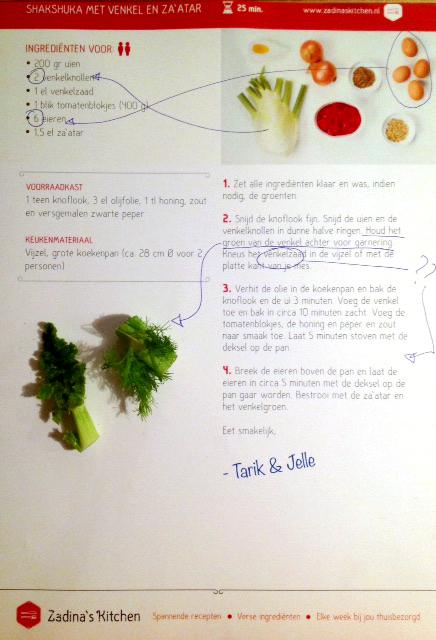 SHAKSHUKA MET VENKEL EN ZA'ATAR
25 min.
www.zadinaskitchen.nl
INGREDIËNTEN VOOR:
• 200 gr uien
• 2 venkelknollen
• 1 el venkelzaad
• 1 blik tomatenblokjes (400 g)
• 6 eieren
• 1,5 el za'atar
VOORRAADKAST
1 teen knoflook, 3 el olijfolie, 1 tl honing, zout
en versgemalen zwarte peper
KEUKENMATERIAAL
Vijzel, grote koekenpan (ca. 28 cm Ø voor 2
personen)
1. Zet alle ingrediënten klaar en was, indien
nodig, de groenten.
2. Snijd de knoflook fijn. Snijd de uien en de
venkelknollen in dunne halve ringen. Houd het
groen van de venkel achter voor garnering.
Kneus het venkelzaad in de vijzel of met de
platte kant van je mes.
??
3. Verhit de olie in de koekenpan en bak de
knoflook en de ui 3 minuten. Voeg de venkel
toe en bak in circa 10 minuten zacht. Voeg de
tomatenblokjes, de honing en peper en zout
naar smaak toe. Laat 5 minuten stoven met de
deksel op de pan.
4. Breek de eieren boven de pan en laat de
eieren in circa 5 minuten met de deksel op de
pan gaar worden. Bestrooi met de za'atar en
het venkelgroen.
Eet smakelijk,
- Tarik & Jelle
Zadina's Kitchen
Spannende recepten • Verse ingrediënten • Elke week bij jou thuisbezorgd